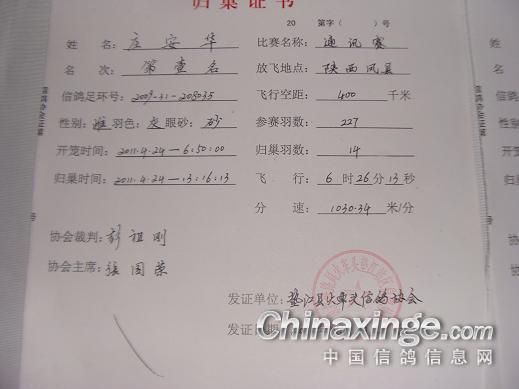 归巢证书
20 第字（ ）号
姓 名：庄安华 比赛名称：通讯赛
名 次：第壹名 放飞地点：陕西凤县
信鸽足环号：2009-31-208035 飞行空距：400 千米
性别：雄 羽色：灰 眼砂：砂 参赛羽数：227
开笼时间：2011.4.24—6:50:00 归巢羽数：14
归巢时间：2011.4.24—13:16:13 飞 行：6 时 26 分 13 秒
分 速：1030.34 米/分
协会裁判：彭祖刚
协会主席：张国荣
发证单位：垫江县火车头信鸽协会
发证日期
Chinaxinge.com
中国信鸽信息网